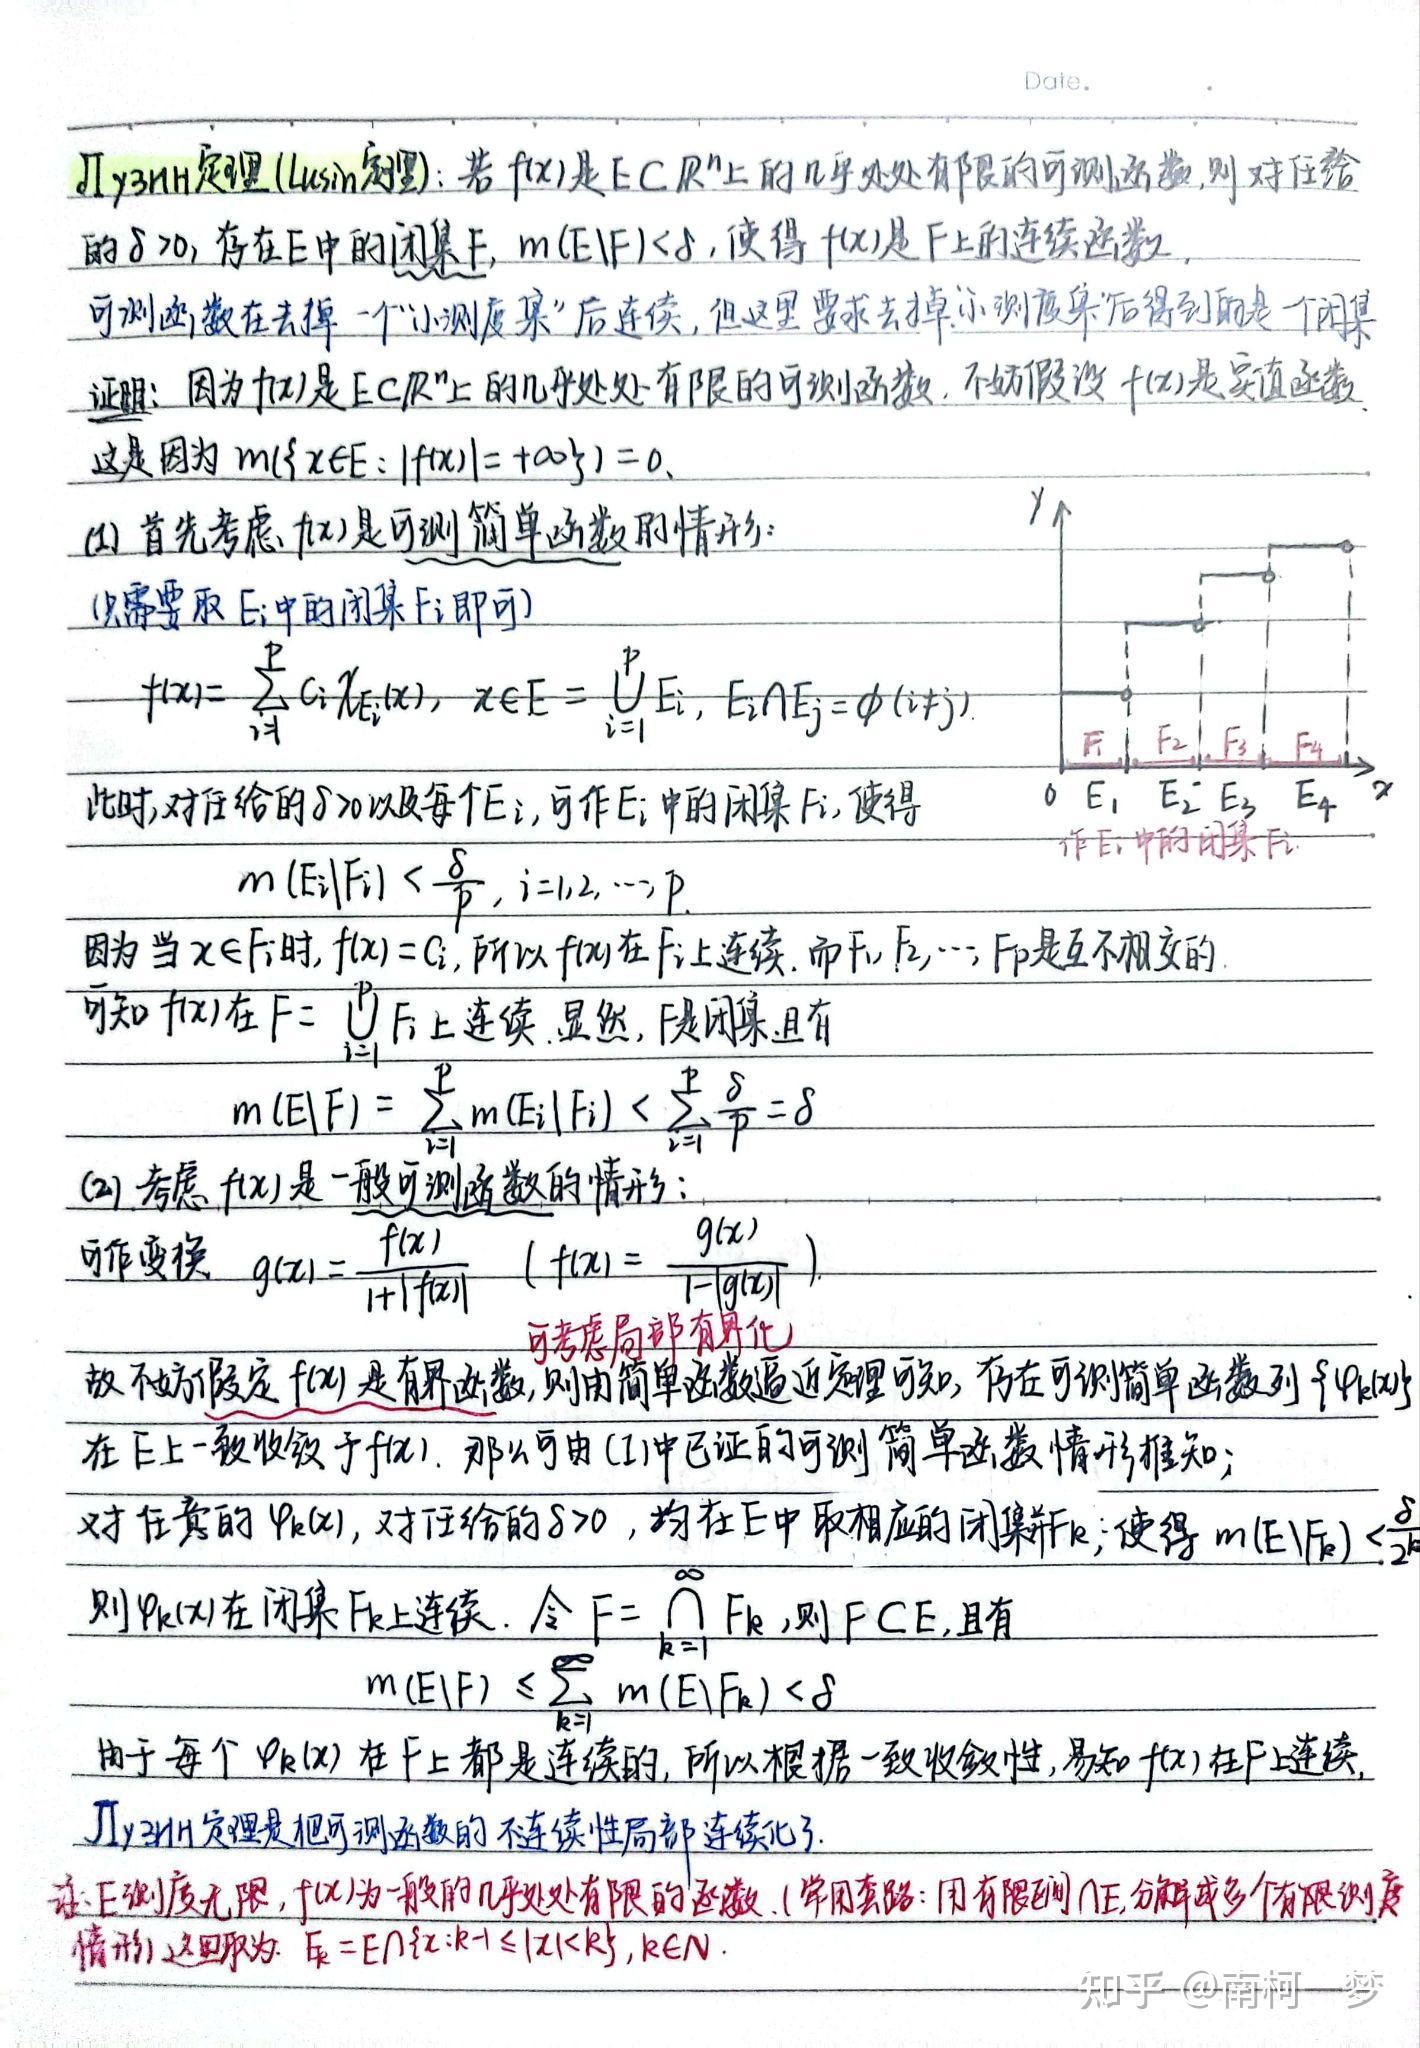 Date.
Лузин定理(Lusin定理): 若 f(x)是E⊂R^n上的几乎处处有限的可测函数,则对任给
的δ>0, 存在E中的闭集F, m(E\F)<δ, 使得 f(x)是F上的连续函数.
可测函数在去掉一个"小测度集"后连续, 但这里要求去掉"小测度集"后得到的是一个闭集
证明: 因为f(x)是E⊂R^n上的几乎处处有限的可测函数. 不妨假设 f(x)是实值函数.
这是因为 m({x∈E: |f(x)|=+∞})=0.
(1) 首先考虑 f(x)是可测简单函数的情形:
(只需要取 Ei中的闭集Fi即可)
f(x)= ∑_{i=1}^{p} Ci χ_{Ei}(x), x∈E = ⋃_{i=1}^{p} Ei, Ei∩Ej=∅(i≠j).
y
F1 F2 F3 F4
0 E1 E2 E3 E4 x
作Ei中的闭集Fi.
此时,对任给的δ>0以及每个Ei,可作Ei中的闭集Fi,使得
m(Ei\Fi) < δ/p, i=1,2,…,p.
因为当x∈Fi时, f(x)=Ci, 所以f(x)在Fi上连续. 而F1, F2,…, Fp是互不相交的.
可知 f(x)在 F= ⋃_{i=1}^{p} Fi上连续. 显然, F是闭集且有
m(E\F) = ∑_{i=1}^{p} m(Ei\Fi) < ∑_{i=1}^{p} δ/p = δ
(2) 考虑 f(x)是一般可测函数的情形:
可作变换 g(x)= f(x)/(1+|f(x)|) ( f(x)= g(x)/(1-|g(x)|) ).
可考虑局部有界化
故不妨假定 f(x)是有界函数,则由简单函数逼近定理可知, 存在可测简单函数列{φk(x)}
在E上一致收敛于f(x). 那么可由(1)中已证的可测简单函数情形推知;
对任意的φk(x), 对任给的δ>0, 均在E中取相应的闭集Fk; 使得 m(E\Fk)<δ/2^k
则φk(x)在闭集Fk上连续. 令 F= ⋂_{k=1}^{∞} Fk, 则F⊂E, 且有
m(E\F) ≤ ∑_{k=1}^{∞} m(E\Fk) < δ
由于每个 φk(x) 在F上都是连续的, 所以根据一致收敛性, 易知 f(x)在F上连续.
Лузин定理是把可测函数的不连续性局部连续化了.
注: E测度无限, f(x)为一般的几乎处处有限的函数. (常用套路: 用有限区间∩E, 分解成多个有限测度
情形) 这里取为. Ek=E∩{x: k-1≤|x|<k}, k∈N.
知乎 @南柯一梦